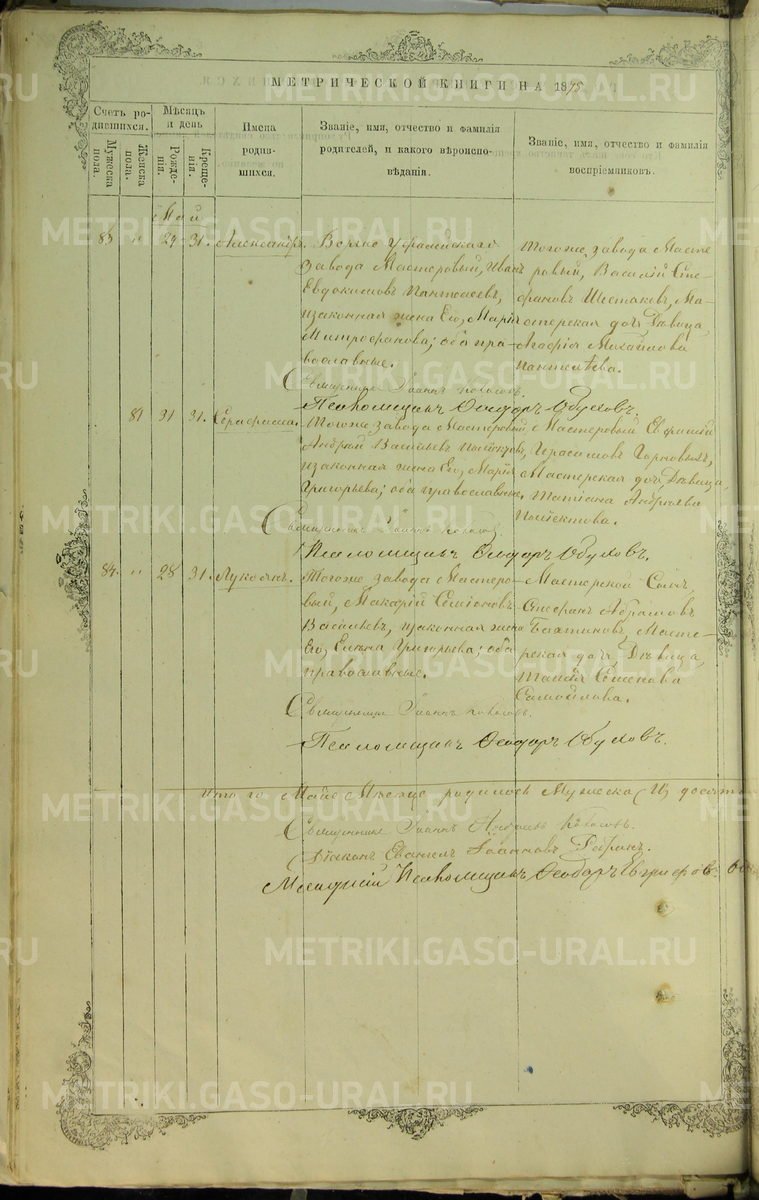 МЕТРИЧЕСКОЙ КНИГИ НА 1875
Счетъ ро-
дившихся.
Мужеска
пола.
Женска
пола.
Мѣсяцъ
и день
Рожде-
нія.
Креще-
нія.
Имена
родив-
шихся.
Званіе, имя, отчество и фамилія
родителей, и какого вѣроиспо-
вѣданія.
Званіе, имя, отчество и фамилія
воспріемниковъ.
Май
83 " 29 31. Александръ.
Верхне Уфалейскаго
завода Мастеровый, Иванъ
Евдокимовъ
и законная жена Его, Марія
Митрофанова; оба пра-
вославные.
Тогоже завода Масте
ровый, Василій Сте-
фановъ Шестаковъ, Ма-
стерская дочь Дѣвица
Агафія Михайлова
Пантелѣева.
Священникъ Іоаннъ
Псаломщикъ Ѳеодоръ Обуховъ.
81 31 31. Серафима.
Тогоже завода Мастеровый
Андрей Васильевъ
и законная жена Его, Марія
Григорьева; оба православные.
Мастеровый
Герасимовъ
Мастерская дочь Дѣвица
Татіана Андреева
Священникъ Іоаннъ
Псаломщикъ Ѳеодоръ Обуховъ.
84. " 28 31. Лукіанъ.
Тогоже завода Мастеро-
вый, Макарій Семіоновъ
Васильевъ, и законная жена
Его, Елена Григорьева; оба
православные.
Мастерской Сынъ
Стефанъ Абрамовъ
Масте-
рская дочь Дѣвица,
Таисія Семенова
Самойлова.
Священникъ Іоаннъ
Псаломщикъ Ѳеодоръ Обуховъ.
Итого въ Маѣ Мѣсяцѣ родилось Мужеска
Священникъ Іоаннъ
Діаконъ Іоанновъ
Младшій Псаломщикъ Ѳеодоръ
METRIKI.GASO-URAL.RU